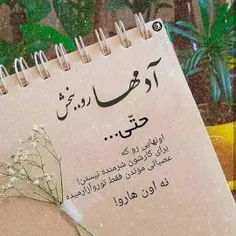 آدمها رو ببخش
حتّی...
اونهایی رو که
برای کارشون شرمنده نیستن!
عصبانی موندن فقط تورو آزار میده
نه اون هارو!